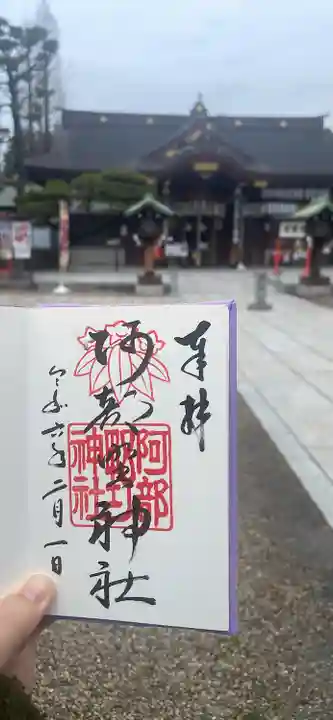 奉拝
阿部野神社
阿部
野
神社
令和六年二月一日